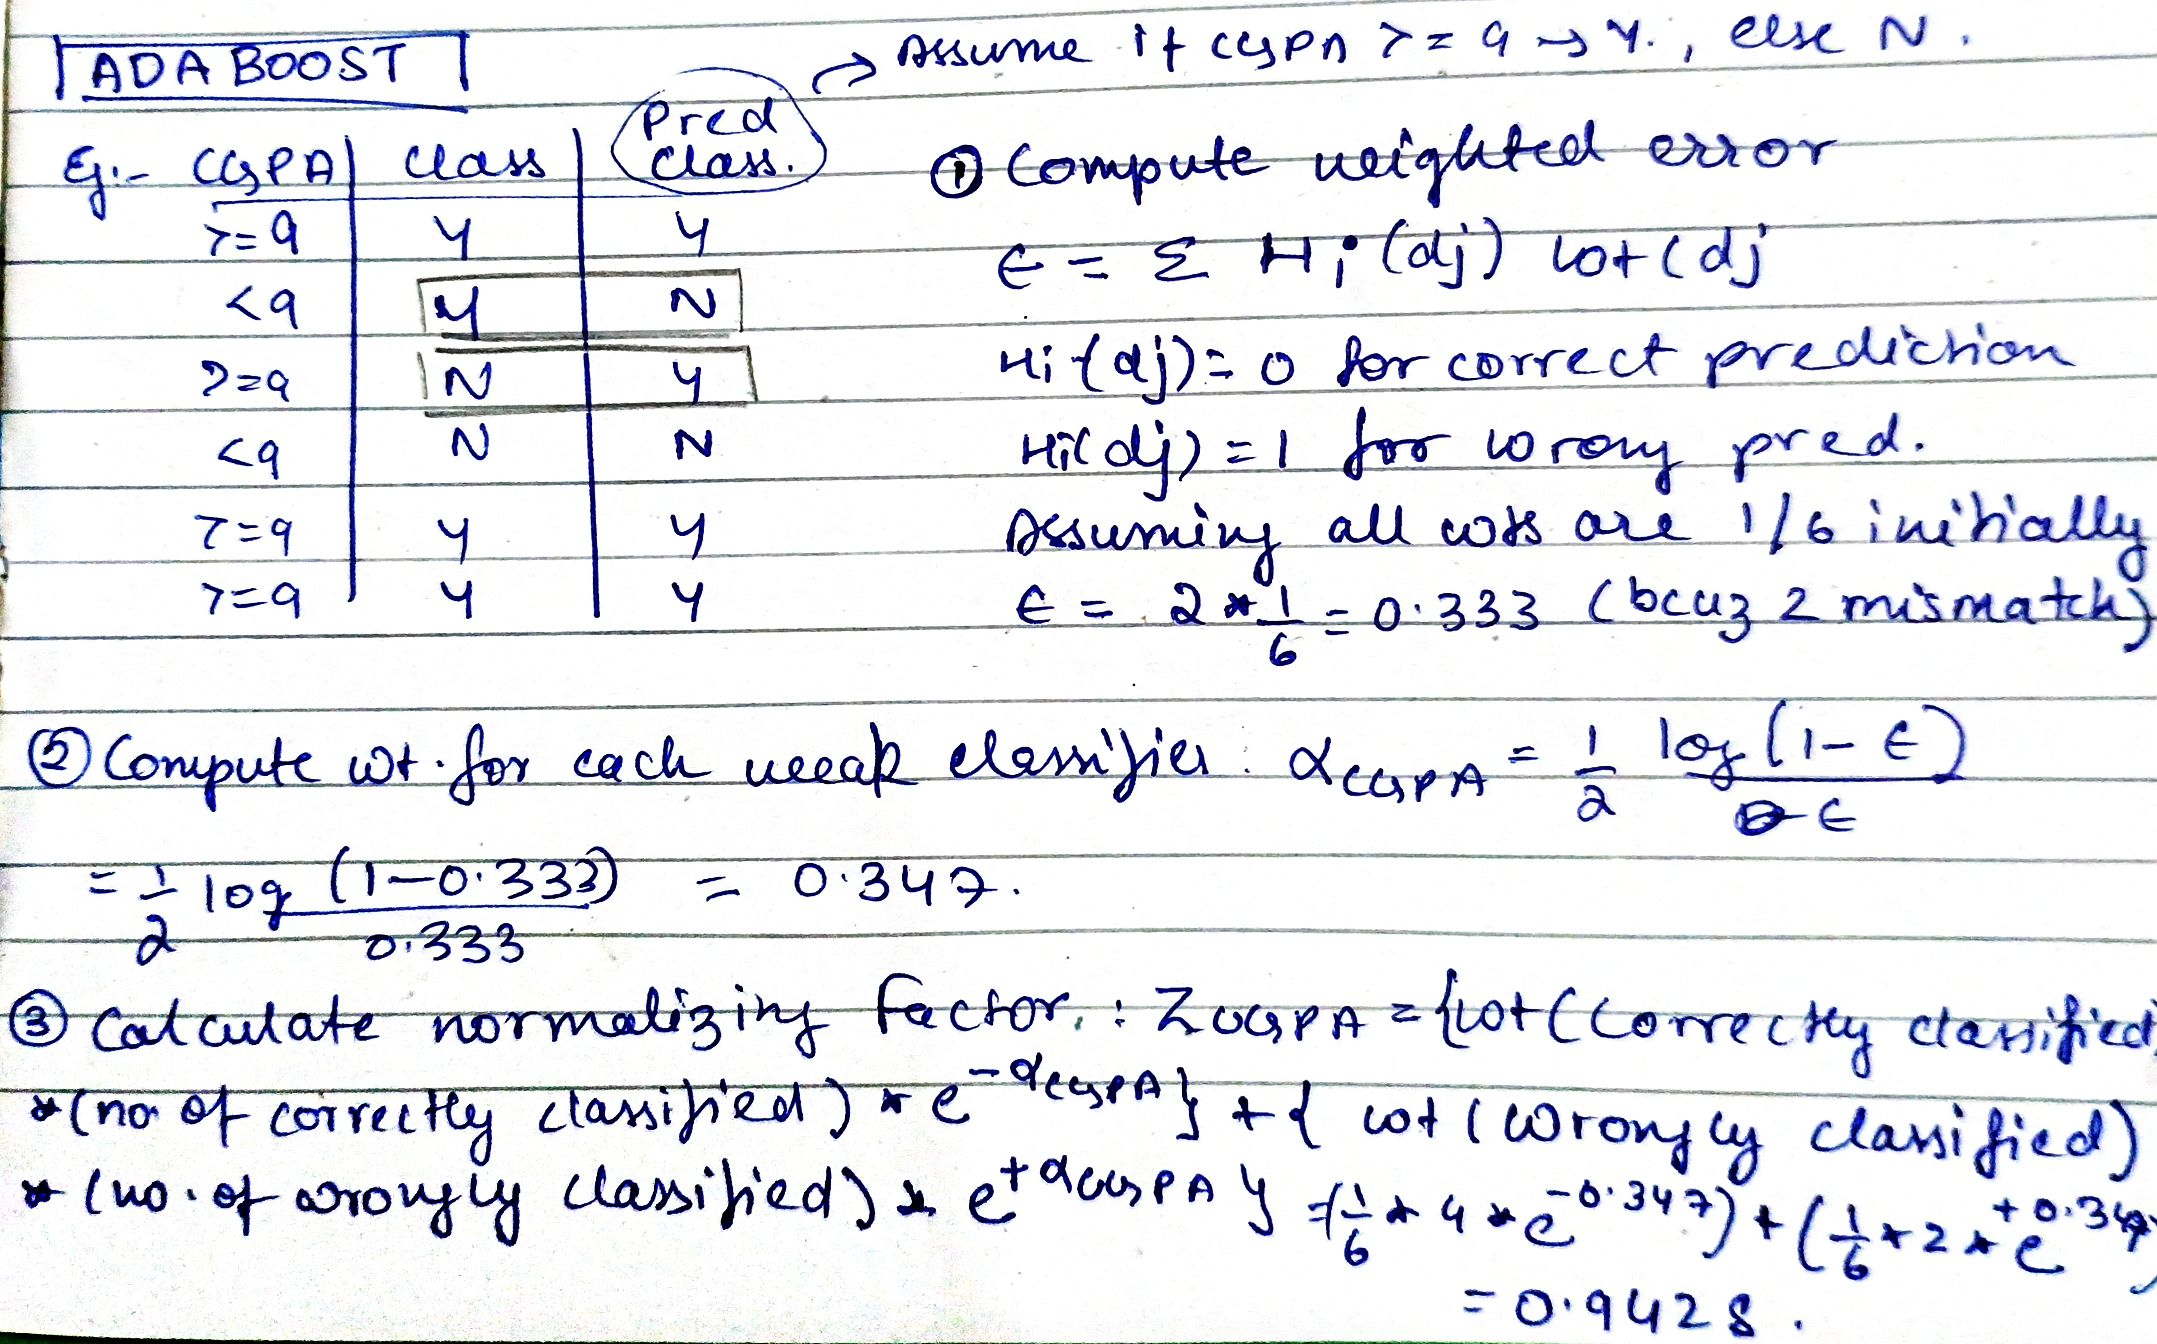 ADA BOOST
→ Assume if CGPA >= 9 → Y., else N.
Eg:- CGPA | Class | Pred Class.
>=9 | Y | Y
<9 | Y | N
>=9 | N | Y
<9 | N | N
>=9 | Y | Y
>=9 | Y | Y
① Compute weighted error
ϵ = Σ Hi(dj) wt(dj
Hi(dj) = 0 for correct prediction
Hi(dj) = 1 for wrong pred.
Assuming all wts are 1/6 initially
ϵ = 2 * 1/6 = 0.333 (bcuz 2 mismatch)
② Compute wt. for each weak classifier : αCGPA = 1/2 log (1-ϵ)/ϵ
= 1/2 log (1-0.333)/0.333 = 0.347.
③ Calculate normalizing factor. : ZCGPA = {wt(Correctly classified)
*(no of correctly classified) * e^-αCGPA} + { wt (Wrongly classified)
* (no. of wrongly classified) * e^+αCGPA } = (1/6 * 4 * e^-0.347) + (1/6 * 2 * e^+0.347)
= 0.9428.